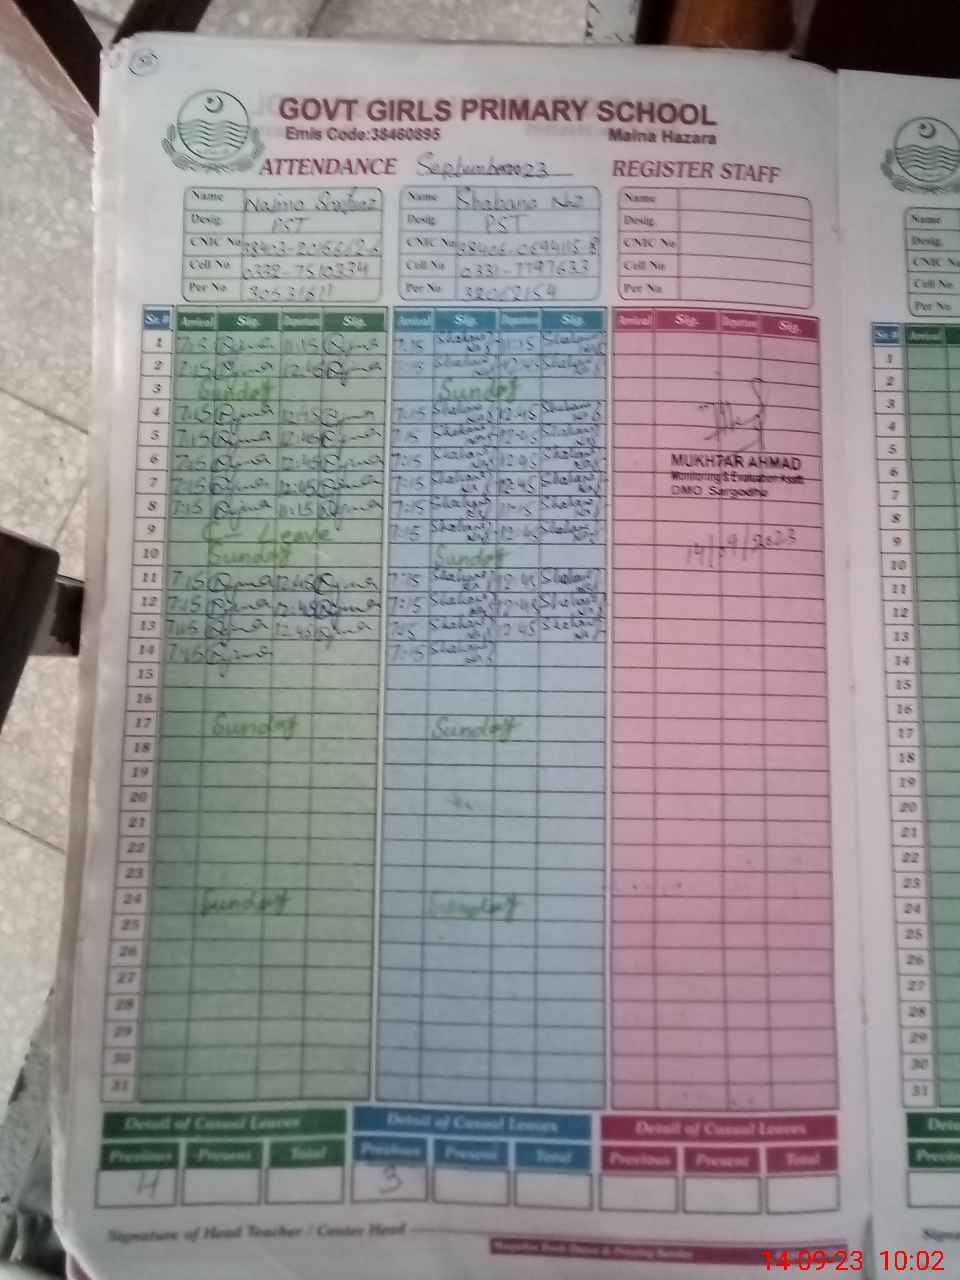 GOVT GIRLS PRIMARY SCHOOL
Emis Code:38460895 Maina Hazara
ATTENDANCE September 2023 REGISTER STAFF
Name Name Shabana Name Name
Desig. PST Desig. PST Desig. Desig.
CNIC No CNIC No CNIC No CNIC No
Cell No 0332-7510334 Cell No 0331-7797633 Cell No Cell No
Per No 30531611 Per No 32062154 Per No Per No
Sr.# Arrival Sig. Departure Sig. Arrival Sig. Departure Sig. Arrival Sig. Departure Sig. Sr.# Arrival
1 7:15 11:15 7:15 Shabana 11:15 Shabana 1
2 7:15 12:45 7:15 Shabana 12:45 Shabana 2
3 Sunday Sunday 3
4 7:15 12:45 7:15 Shabana 12:45 Shabana 4
5 7:15 12:45 7:15 Shabana 12:45 Shabana 5
6 7:15 12:45 7:15 Shabana 12:45 Shabana MUKHTAR AHMAD 6
7 7:15 12:45 7:15 Shabana 12:45 Shabana Monitoring & Evaluation Asstt: 7
DMO Sargodha
8 7:15 11:15 7:15 Shabana 11:15 Shabana 8
9 C- Leave 7:15 Shabana 12:45 Shabana 14/09/2023 9
10 Sunday Sunday 10
11 7:15 12:45 7:15 Shabana 12:45 Shabana 11
12 7:15 12:45 7:15 Shabana 12:45 Shabana 12
13 7:15 12:45 7:15 Shabana 12:45 Shabana 13
14 7:15 7:15 Shabana 14
15 15
16 16
17 Sunday Sunday 17
18 18
19 19
20 20
21 21
22 22
23 23
24 Sunday Sunday 24
25 25
26 26
27 27
28 28
29 29
30 30
31 31
Detail of Casual Leaves Detail of Casual Leaves Detail of Casual Leaves
Previous Present Total Previous Present Total Previous Present Total
4 3
Signature of Head Teacher / Center Head
14-09-23 10:02